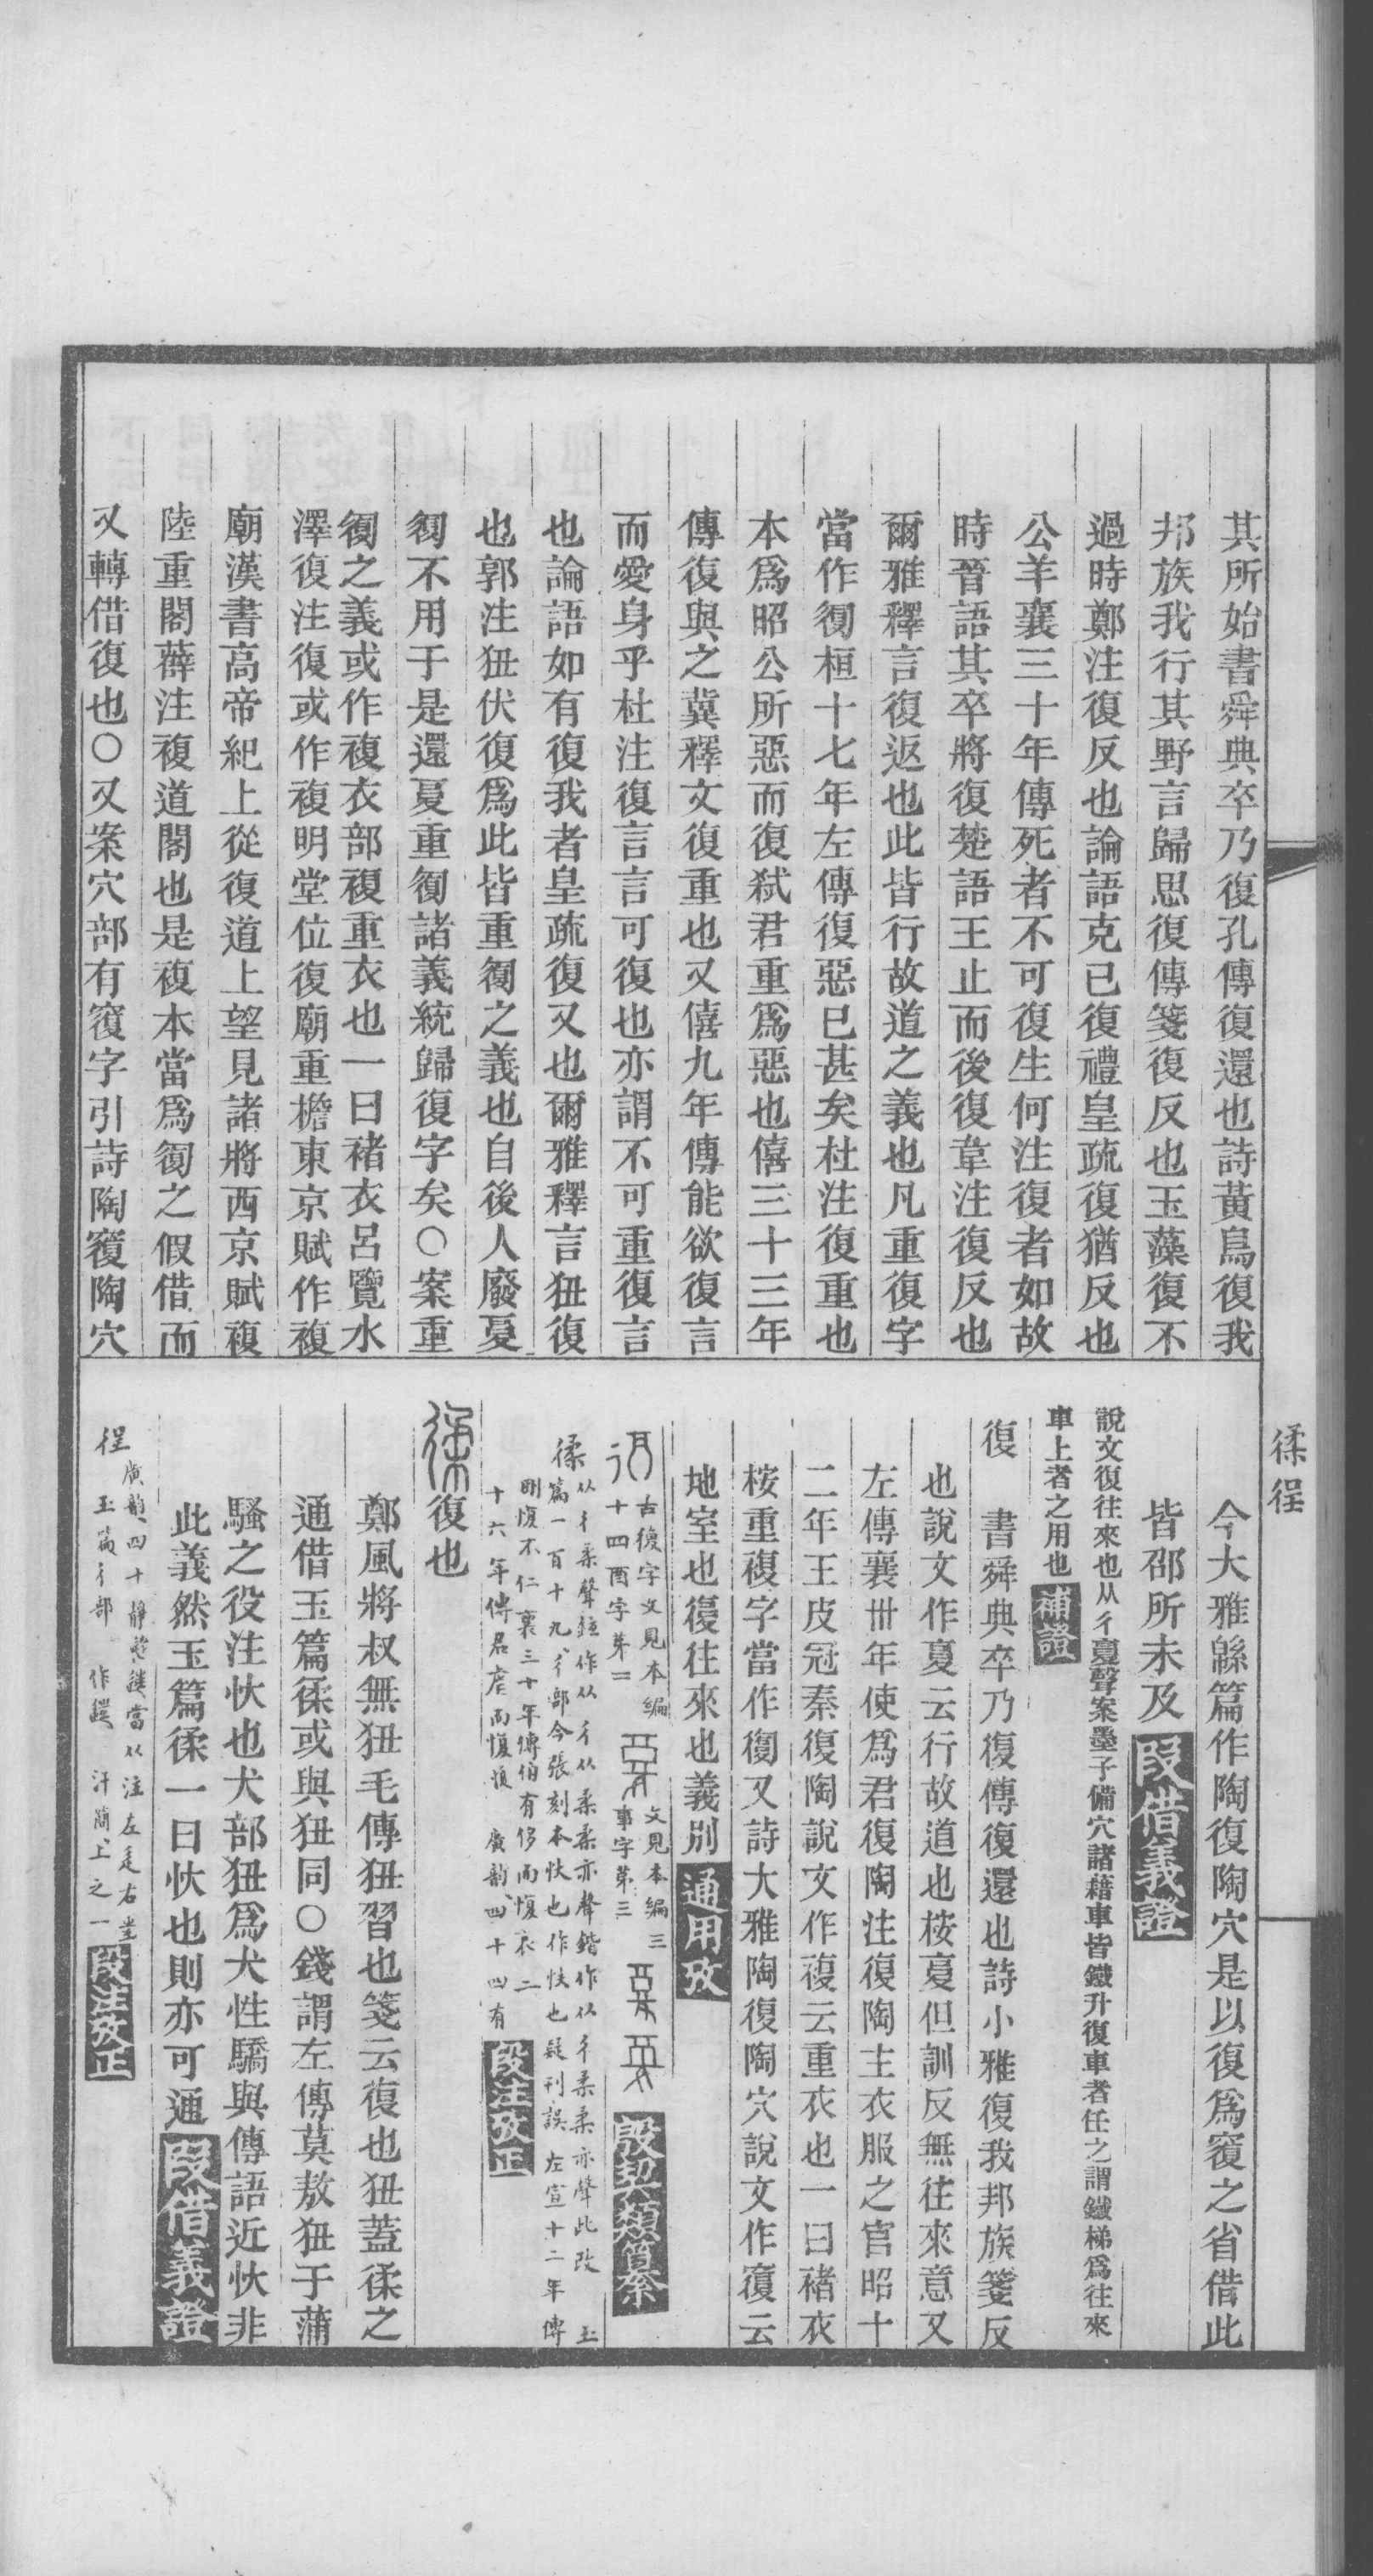 其所始書舜典卒乃復孔傳復還也詩黃鳥復我
邦族我行其野言歸思復傳箋復反也玉藻復不
過時鄭注復反也論語克已復禮皇疏復猶反也
公羊襄三十年傳死者不可復生何注復者如故
時晉語其卒將復楚語王止而後復韋注復反也
爾雅釋言復返也此皆行故道之義也凡重復字
當作𠣸桓十七年左傳復惡巳甚矣杜注復重也
本爲昭公所惡而復弑君重爲惡也僖三十三年
傳復與之冀釋文復重也又僖九年傳能欲復言
而愛身乎杜注復言言可復也亦謂不可重復言
也論語如有復我者皇疏復又也爾雅釋言狃復
也郭注狃伏復爲此皆重𠣸之義也自後人廢夏
𠣸不用于是還夏重𠣸諸義統歸復字矣○案重
𠣸之義或作複衣部複重衣也一曰褚衣呂覽水
澤復注復或作複明堂位復廟重檐東京賦作複
廟漢書高帝紀上從復道上望見諸將西京賦複
陸重閣薛注複道閣也是複本當爲𠣸之假借而
又轉借復也○又案穴部有𥨍字引詩陶𥨍陶穴
今大雅緜篇作陶復陶穴是以復爲𥨍之省借此
皆邵所未及 段借義證
說文復往來也从彳夏聲案墨子備穴諸藉車皆鐵升復車者任之謂鐵梯爲往來
車上者之用也 補證
復 書舜典卒乃復傳復還也詩小雅復我邦族箋反
也說文作夏云行故道也桉夏但訓反無往來意又
左傳襄卅年使爲君復陶注復陶主衣服之官昭十
二年王皮冠秦復陶說文作複云重衣也一曰褚衣
桉重複字當作𠣸又詩大雅陶復陶穴說文作𥨍云
地室也復往來也義別 通用攷
古復字文見本編
十四酉字第二
文見本編三
事字第三
殷契類纂
徖 从彳柔聲鉉作从彳从柔柔亦聲鍇作从彳柔柔亦聲此改 玉
篇一百十九彳部今張刻本忕也作怢也疑刊誤 左宣十二年傳
剛愎不仁襄三十年傳伯有侈而愎衣二
十六年傳君虐而愎 廣韵四十四有
段注攷正
復也
鄭風將叔無狃毛傳狃習也箋云復也狃蓋徖之
通借玉篇徖或與狃同○錢謂左傳莫敖狃于蒲
騷之役注忕也犬部狃爲犬性驕與傳語近忕非
此義然玉篇徖一曰忕也則亦可通 段借義證
徎 廣韵四十靜
玉篇彳部 汗𥳑上之一
段注攷正
徖徎